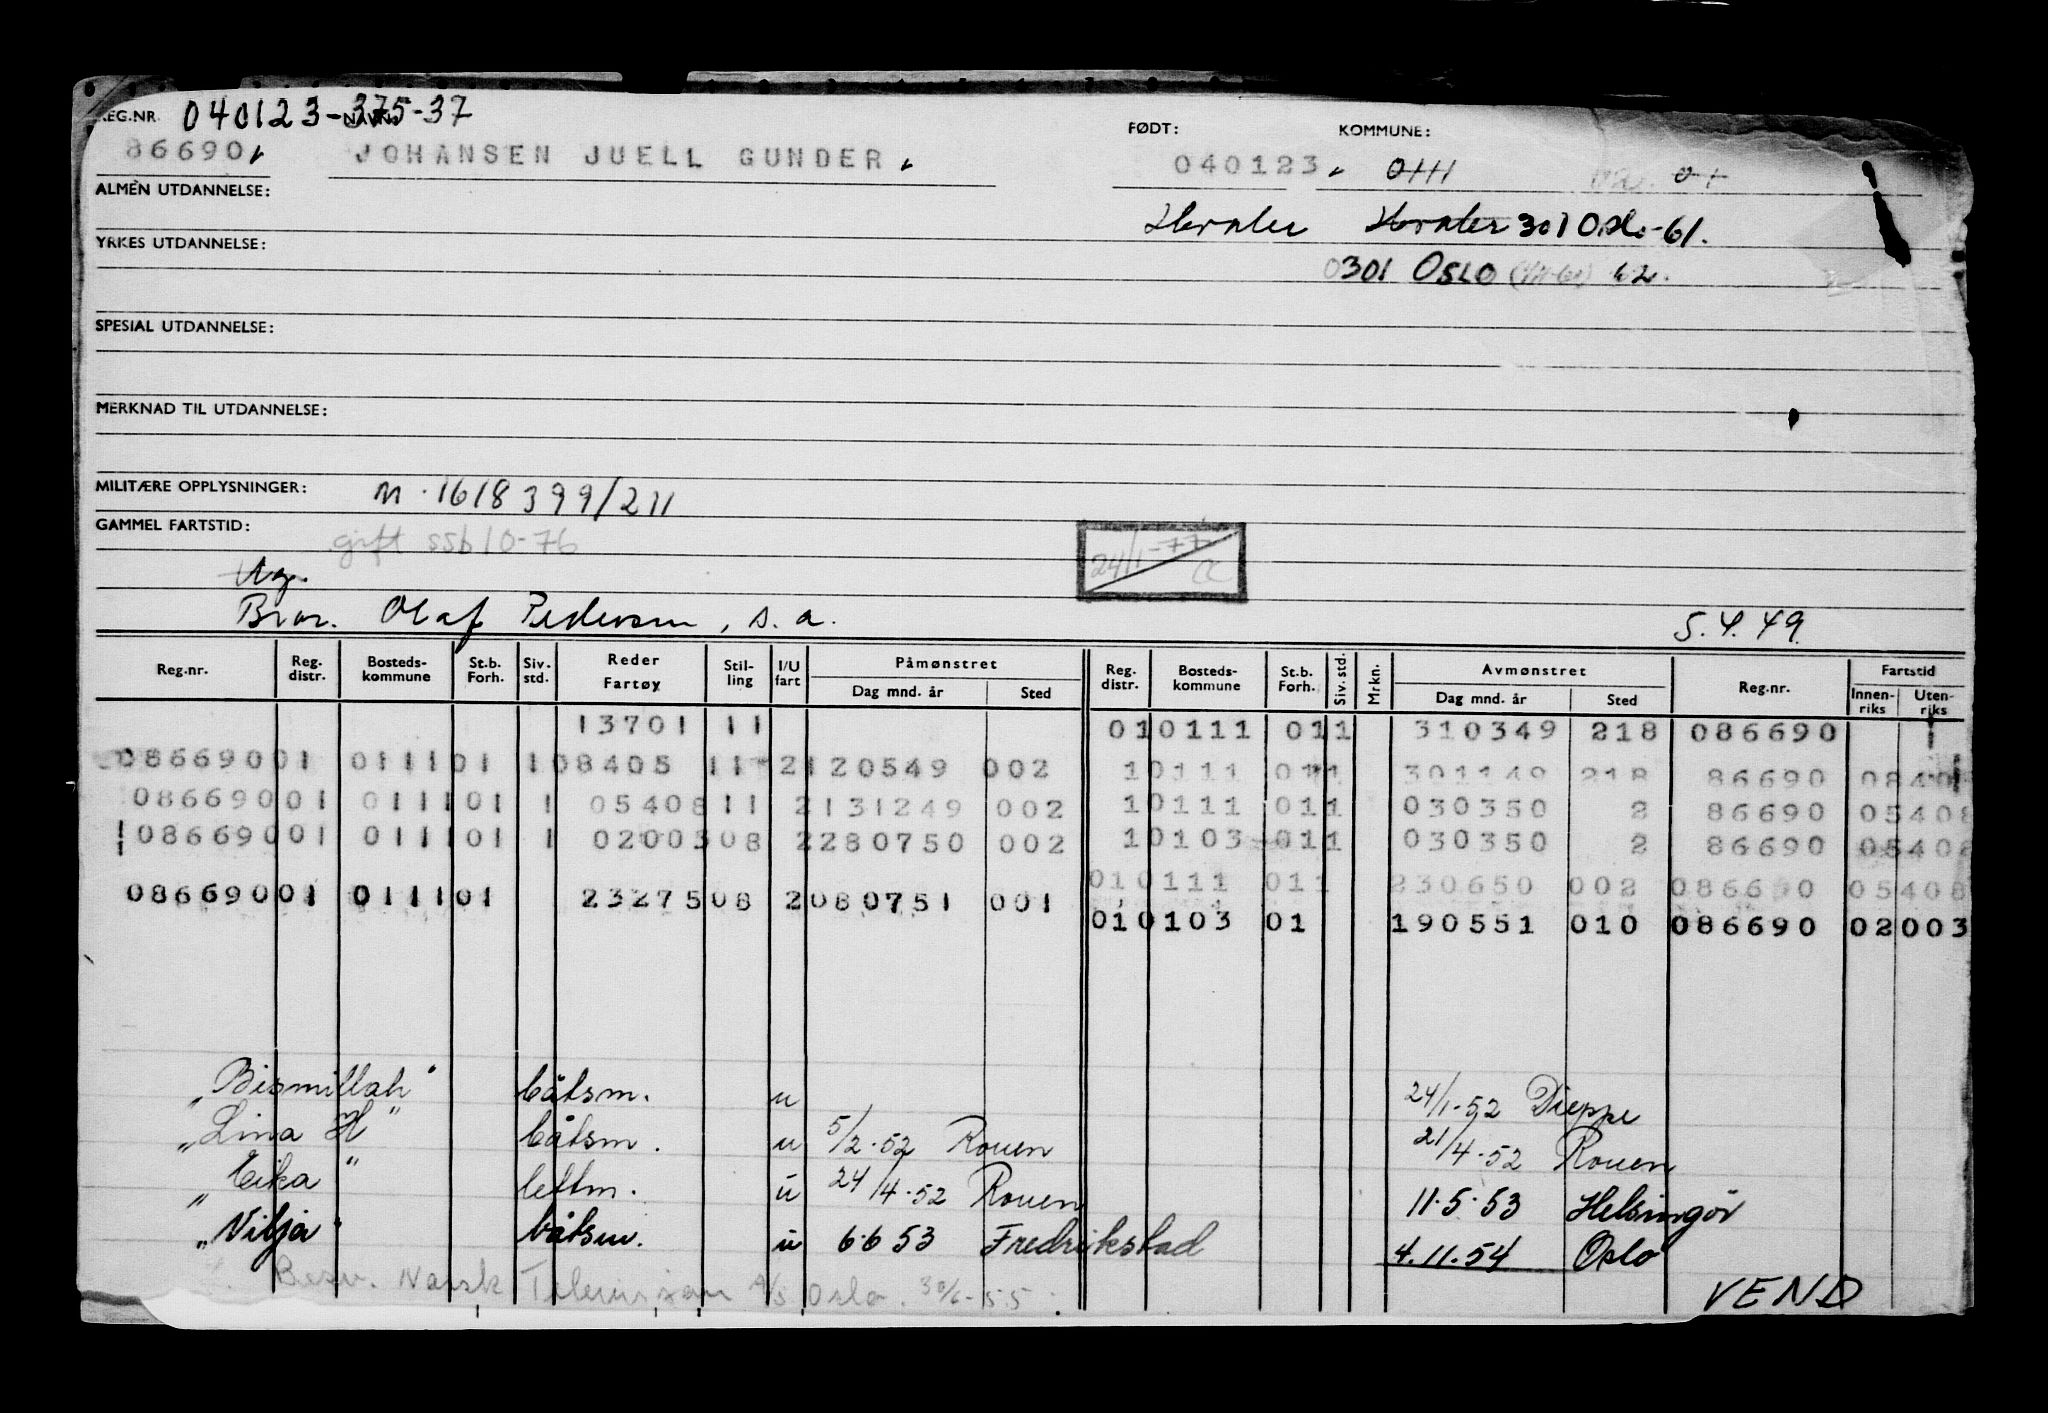 REG.NR. 040123-375-37 NAVN: FØDT: KOMMUNE:
86690 JOHANSEN JUELL GUNDER 040123 0111
ALMEN UTDANNELSE: Hvaler Hvaler 301 Oslo-61.
YRKES UTDANNELSE: 0301 OSLO 62.
SPESIAL UTDANNELSE:
MERKNAD TIL UTDANNELSE:
MILITÆRE OPPLYSNINGER: M.1618399/211
GAMMEL FARTSTID: gift ssb 10-76 24/1-77 CC
Ug.
Bror. Olaf Pedersen, s.a. 5.4.49
Reg.nr. Reg. distr. Bosteds-kommune St.b. Forh. Siv. std. Reder Fartøy Stil-ling I/U fart Påmønstret Dag mnd. år Sted Reg. distr. Bosteds-kommune St.b. Forh. Siv. std. Mrkn. Avmønstret Dag mnd. år Sted Reg.nr. Fartstid Innen-riks Uten-riks
13701 11 01 0111 01 1 310349 218 086690
086690 01 0111 01 1 08405 11 2 120549 002 1 0111 01 1 301149 218 86690
086690 01 0111 01 1 05408 11 2 131249 002 1 0111 01 1 030350 2 86690 05408
086690 01 0111 01 1 02003 08 2 280750 002 1 0103 01 1 030350 2 86690 05408
01 0111 01 1 230650 002 086690 05408
086690 01 0111 01 23275 08 2 080751 001 01 0103 01 190551 010 086690 02003
"Bismillah" båtsm. u 24/1-52 Dieppe
"Lina H" båtsm. u 5/2.52 Rouen 21/4.52 Rouen
"Eika" lettm. u 24/4.52 Rouen 11.5.53 Helsingør
"Vilja" båtsm. u 6.6 53 Fredrikstad 4.11.54 Oslo
Besv. Norsk Television A/S Oslo. 30/6-55.
VEND